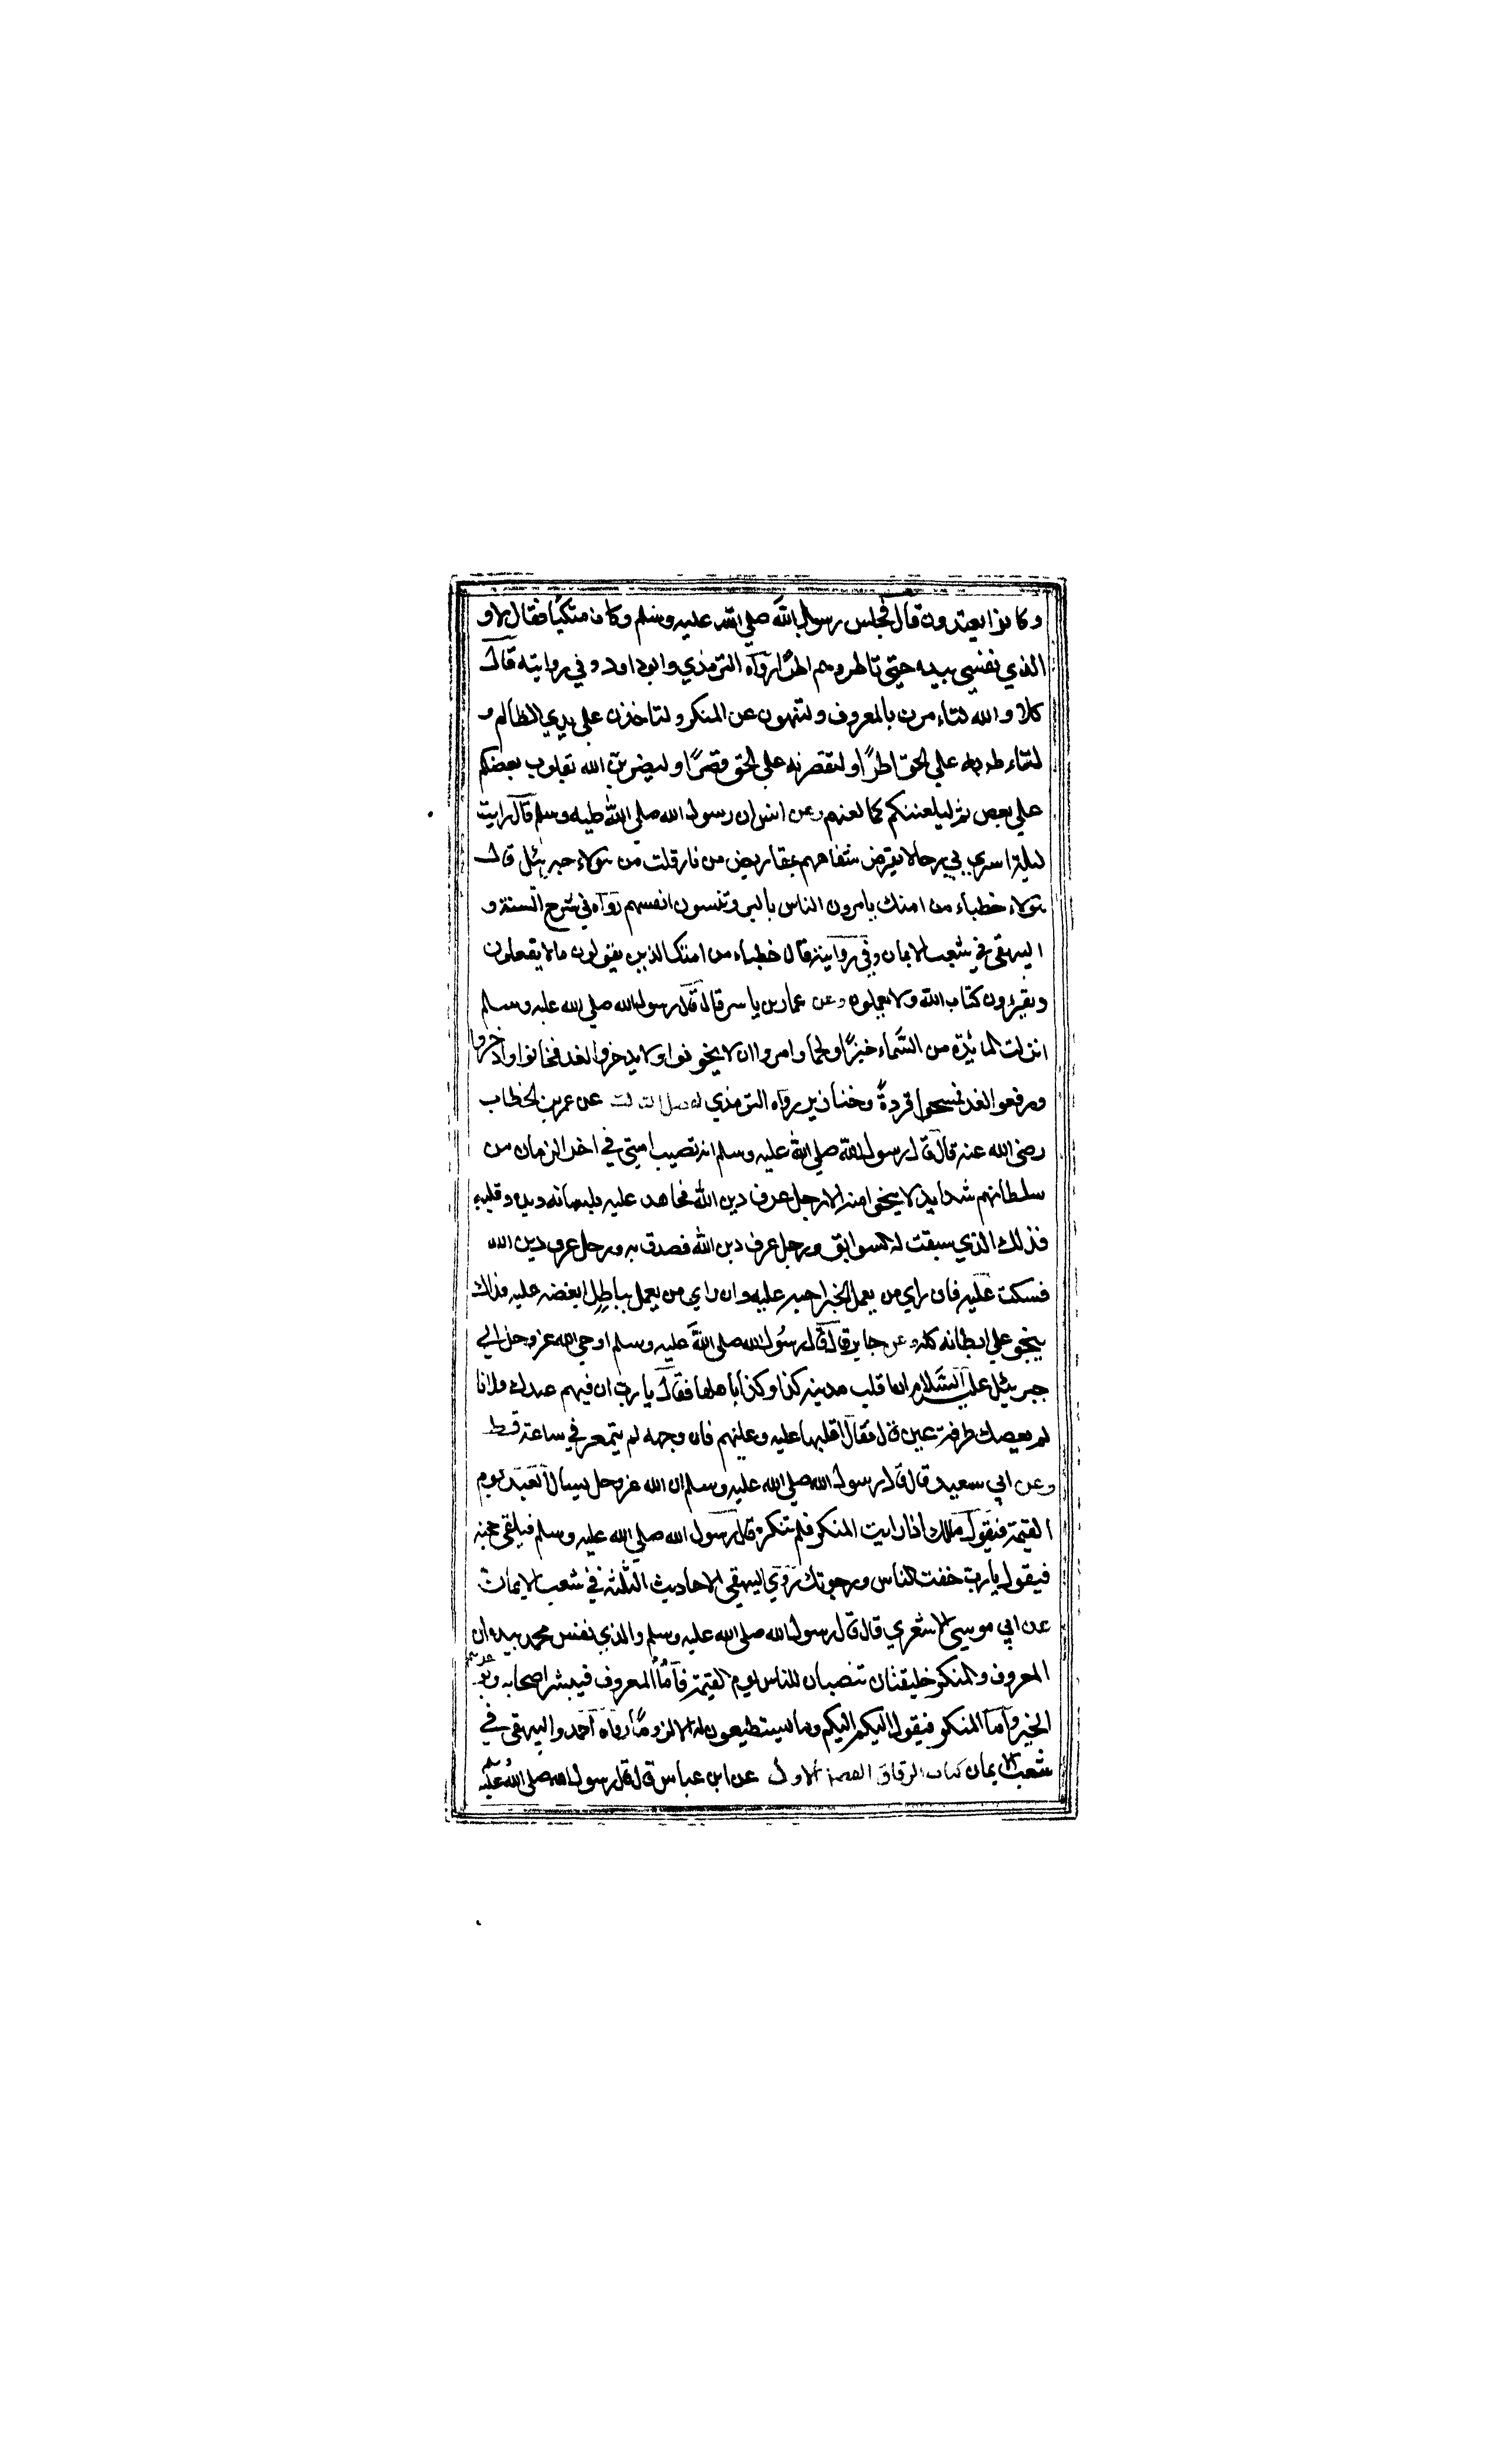 وكانوا يعتدون قال فجلس رسول الله صلي الله عليه وسلم وكان متكيًا فقال لا و
الذي نفسي بيده حتي تاطروهم اطرًا رواه الترمذي وابوداود وفي روايته قال
كلا والله لتاءمرن بالمعروف ولتنهون عن المنكر ولتاخذن علي يدي الظالم و
لتاءطرنه علي الحق اطرًا ولتقصرنه علي الحق قصرًا وليضربن الله بقلوب بعضكم
علي بعض ثم ليلعننكم كما لعنهم وعن انس ان رسول الله صلي الله عليه وسلم قال رايت
ليلة اسري بي رجالا يقرض شفاههم بمقاريض من نار قلت من هولاء جبرئيل قال
هولاء خطباء من امتك يامرون الناس بالبر وتنسون انفسهم رواه في شرح السنة و
البيهقي في شعب الايمان وفي رواية قال خطباء من امتك الذين يقولون ما لا يفعلون
ويقرءون كتاب الله ولا يعملون وعن عمار بن ياسر قال قال رسول الله صلي الله عليه وسلم
انزلت المائدة من السماء خبزًا ولحما وامروا ان لا يخونوا ولا يدخروا لغد فخانوا وادخروا
ورفعوا لغد فمسخوا قردةً وخنازير رواه الترمذي عن عمر بن الخطاب
رضي الله عنه قال قال رسول الله صلي الله عليه وسلم انه تصيب امتي في اخر الزمان من
سلطانهم شدايد لا ينجو منه الا رجل عرف دين الله فجاهد عليه بلسانه ويده وقلبه
فذلك الذي سبقت له السوابق ورجل عرف دين الله فصدق به ورجل عرف دين الله
فسكت عليه فان راي من يعمل الخير احبه عليه وان راي من يعمل بباطل ابغضه عليه فذلك
ينجو علي ابطانه كله وعن جابر قال قال رسول الله صلي الله عليه وسلم اوحي الله عز وجل الي
جبرئيل عليه السلام ان اقلب مدينه كذا وكذا باهلها فقال يا رب ان فيهم عبدك فلانا
لم يعصك طرفة عين قال فقال اقلبها عليه وعليهم فان وجهه لم يتمعر في ساعة قط
وعن ابي سعيد قال قال رسول الله صلي الله عليه وسلم ان الله عز وجل يسال العبد يوم
القيمة فيقول مالك اذا رايت المنكر فلم تنكره قال رسول الله صلي الله عليه وسلم فيلقي حجته
فيقول يا رب خفت الناس ورجوتك روي البيهقي الاحاديث الثلثة في شعب الايمان
عن ابي موسي الاشعري قال قال رسول الله صلي الله عليه وسلم والذي نفس محمد بيده ان
المعروف والمنكر خليقتان تنصبان للناس يوم القيمة فاما المعروف فيبشر اصحابه ويوعدهم
الخير واما المنكر فيقول اليكم اليكم وما يستطيعون له الا لزومًا رواه احمد والبيهقي في
شعب الايمان كتاب الرقاق الفصل الاول عن ابن عباس قال قال رسول الله صلي الله عليه